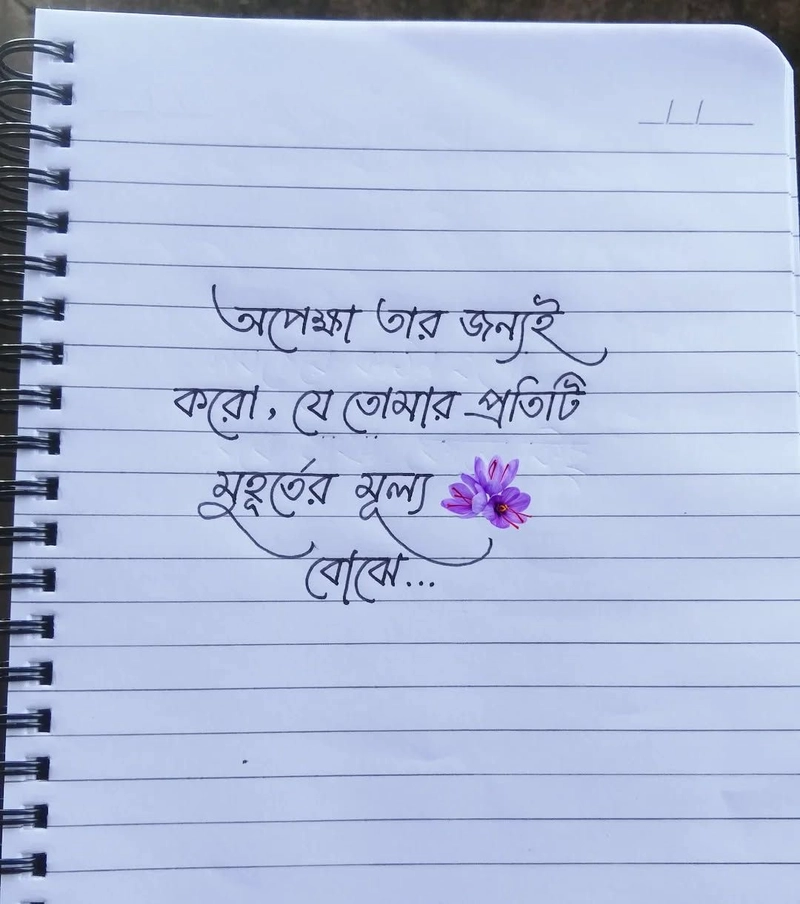 অপেক্ষা তার জন্যই
করো, যে তোমার প্রতিটি
মুহূর্তের মূল্য
বোঝে...